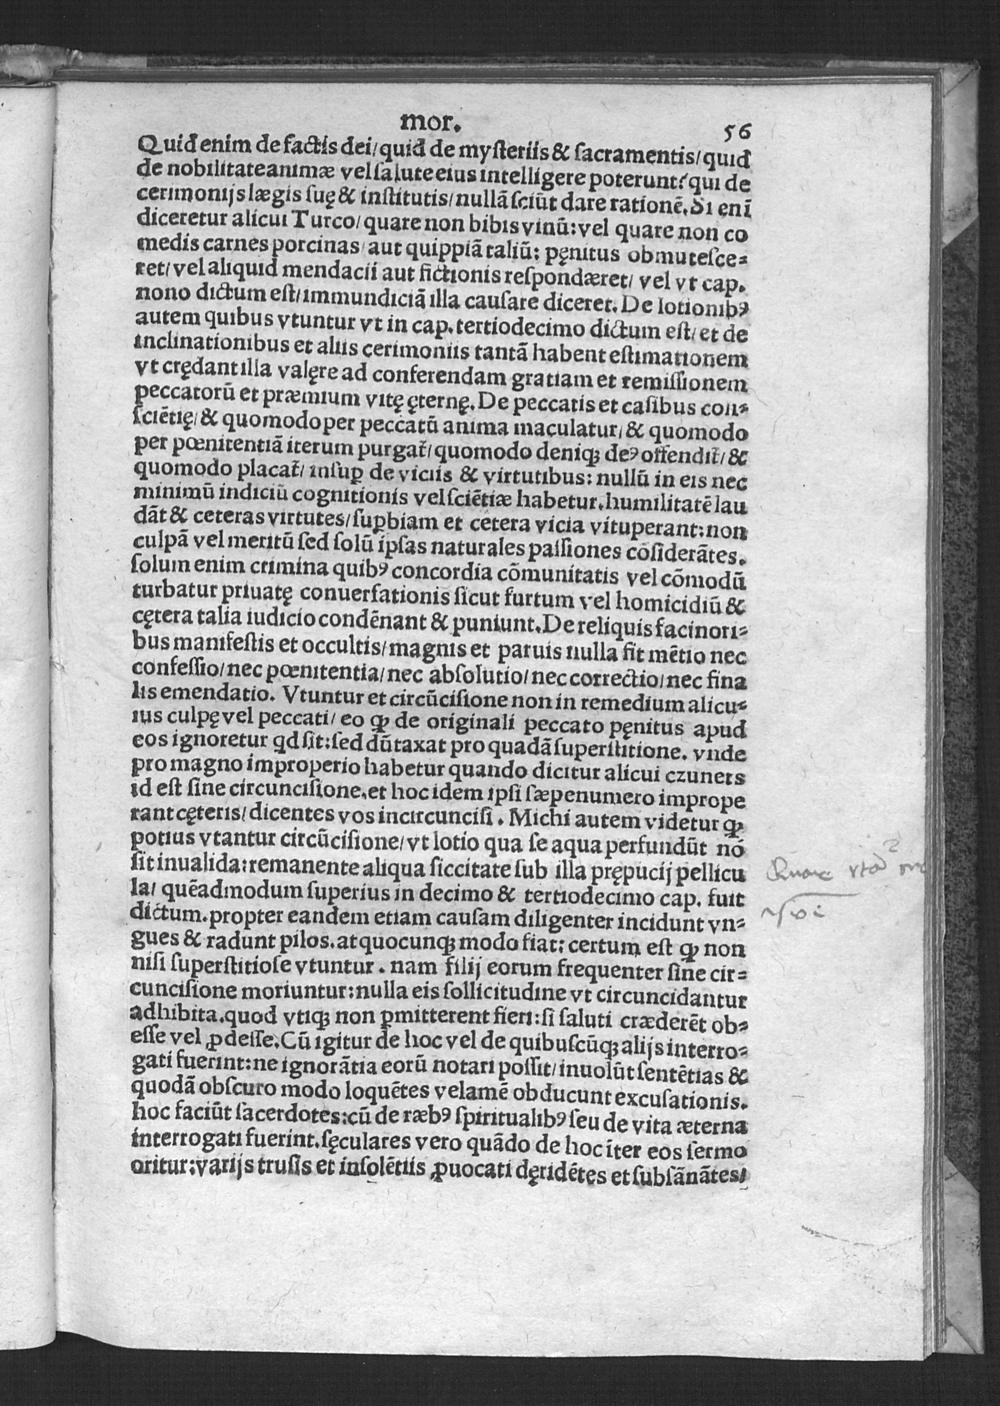 mor.
56
Quid enim de factis dei/quid de mysteriis & sacramentis/quid
de nobilitate animæ vel salute eius intelligere poterunt? qui de
cerimonijs lægis suę & institutis/nullã sciũt dare rationẽ. Si enĩ
diceretur alicui Turco/quare non bibis vinũ: vel quare non co
medis carnes porcinas aut quippiã taliũ: pęnitus obmutesce=
ret/vel aliquid mendacii aut fictionis respondæret/ vel vt cap.
nono dictum est/immundiciã illa causare diceret. De lotionibꝰ
autem quibus vtuntur vt in cap. tertiodecimo dictum est/et de
inclinationibus et aliis cerimoniis tantã habent estimationem
vt cręďant illa valęre ad conferendam gratiam et remissionem
peccatorũ et præmium vitę ęternę. De peccatis et casibus con=
sciẽtię/& quomodo per peccatũ anima maculatur/& quomodo
per pœnitentiã iterum purgat̃/quomodo deniqꝫ deꝰ offendit̃/&
quomodo placat̃/insuꝑ de viciis & virtutibus: nullũ in eis nec
minimũ indiciũ cognitionis vel sciẽtiæ habetur. humilitatẽ lau
dãt & ceteras virtutes/suꝑbiam et cetera vicia vituperant: non
culpã vel meritũ sed solũ ipsas naturales passiones cõsiderãtes.
solum enim crimina quibꝰ concordia cõmunitatis vel cõmodũ
turbatur priuatę conuersationis sicut furtum vel homicidiũ &
cętera talia iudicio condẽnant & puniunt. De reliquis facinori=
bus manifestis et occultis/magnis et paruis nulla fit mẽtio nec
confessio/nec pœnitentia/nec absolutio/nec correctio/nec fina
lis emendatio. Vtuntur et circũcisione non in remedium alicu=
ius culpę vel peccati/ eo ꝙ de originali peccato pęnitus apud
eos ignoretur qd sit: sed dũtaxat pro quadã superstitione. vnde
pro magno improperio habetur quando dicitur alicui czunets
id est sine circuncisione. et hoc idem ipsi sæpenumero imprope
rant cęteris/dicentes vos incircuncisi. Michi autem videtur ꝙ
potius vtantur circũcisione/vt lotio qua se aqua perfundũt nõ
sit inualida: remanente aliqua siccitate sub illa prępucij pellicu
la/ quẽadmodum superius in decimo & tertiodecimo cap. fuit
dictum. propter eandem etiam causam diligenter incidunt vn=
gues & radunt pilos. at quocunqꝫ modo fiat: certum est ꝙ non
nisi superstitiose vtuntur. nam filij eorum frequenter sine cir=
cuncisione moriuntur: nulla eis sollicitudine vt circuncidantur
adhibita. quod vtiqꝫ non ꝑmitterent fieri: si saluti cræderẽt ob=
esse vel ꝓdesse. Cũ igitur de hoc vel de quibuscũqꝫ alijs interro=
gati fuerint: ne ignorãtia eorũ notari possit/inuolũt sentẽtias &
quodã obscuro modo loquẽtes velamẽ obducunt excusationis.
hoc faciũt sacerdotes: cũ de ræbꝰ spiritualibꝰ seu de vita æterna
interrogati fuerint. sęculares vero quãdo de hoc ĩter eos sermo
oritur: varijs trusis et insolẽtiis ꝓuocati dęridẽtes et subsãnãtes/
Quare